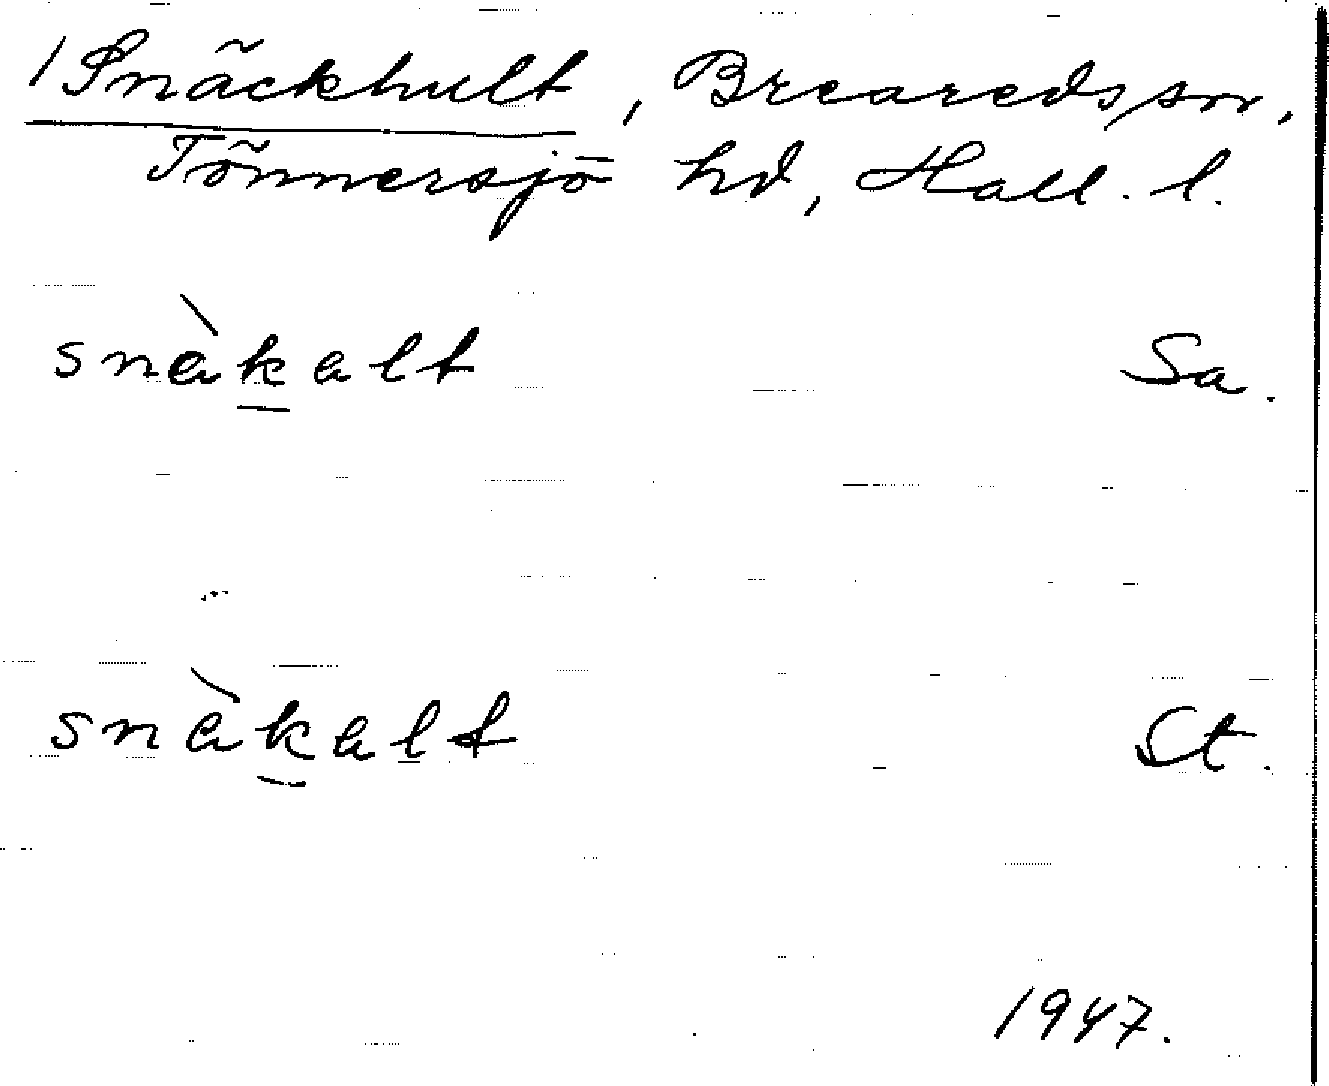 / Snäckhult, Breareds sn,
Tönnersjö hd, Hall. l.
snàkalt Sa.
snàkalt St.
1947.